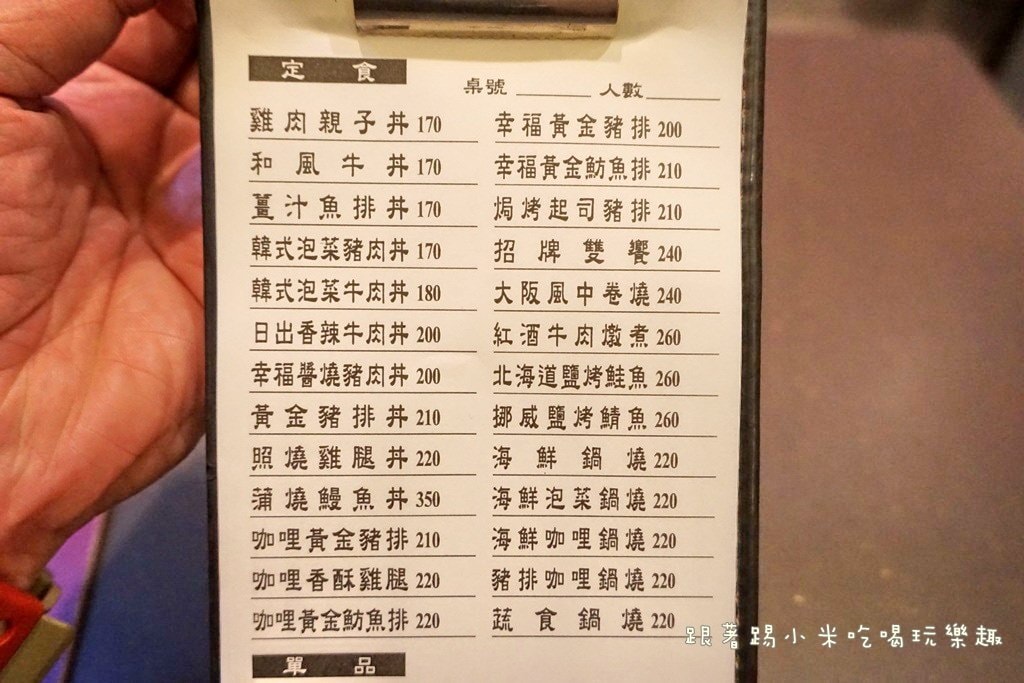 定食
桌號 ________ 人數________
雞肉親子丼 170
和風牛丼 170
薑汁魚排丼 170
韓式泡菜豬肉丼 170
韓式泡菜牛肉丼 180
日出香辣牛肉丼 200
幸福醬燒豬肉丼 200
黃金豬排丼 210
照燒雞腿丼 220
蒲燒鰻魚丼 350
咖哩黃金豬排 210
咖哩香酥雞腿 220
咖哩黃金魴魚排 220
幸福黃金豬排 200
幸福黃金魴魚排 210
焗烤起司豬排 210
招牌雙饗 240
大阪風中卷燒 240
紅酒牛肉燉煮 260
北海道鹽烤鮭魚 260
挪威鹽烤鯖魚 260
海鮮鍋燒 220
海鮮泡菜鍋燒 220
海鮮咖哩鍋燒 220
豬排咖哩鍋燒 220
蔬食鍋燒 220
單品
跟著踢小米吃喝玩樂趣